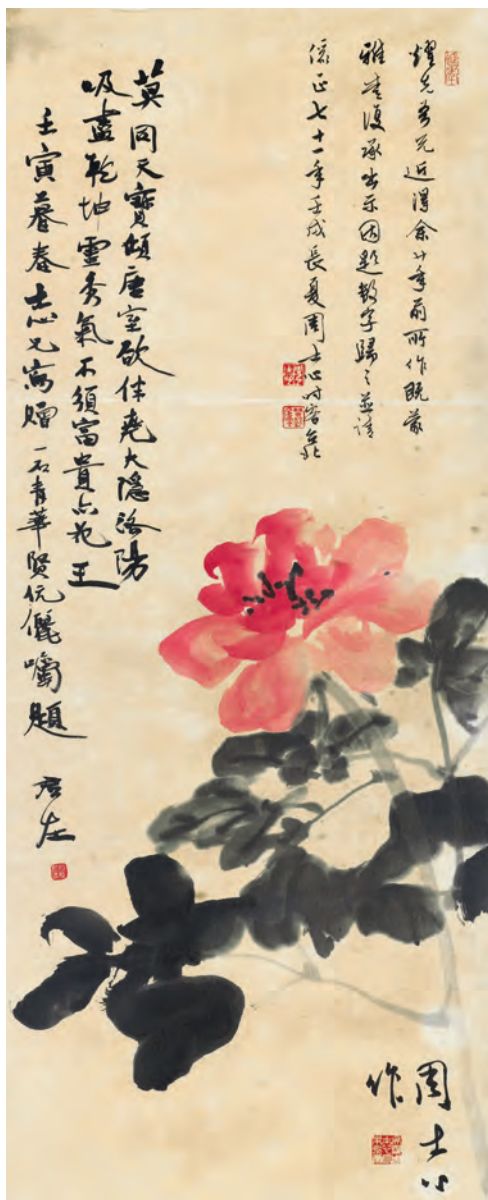 耀先吾兄近得余廿年前所作既蒙
雅意復承出示因題數字歸之並請
儷正七十一年壬戌長夏周士心時客
莫同天寶傾唐室欲伴堯夫隱洛陽
吸盡乾坤靈秀氣不須富貴亦花王
壬寅暮春士心兄寫贈一石青華賢伉儷囑題
君左
周士心
作